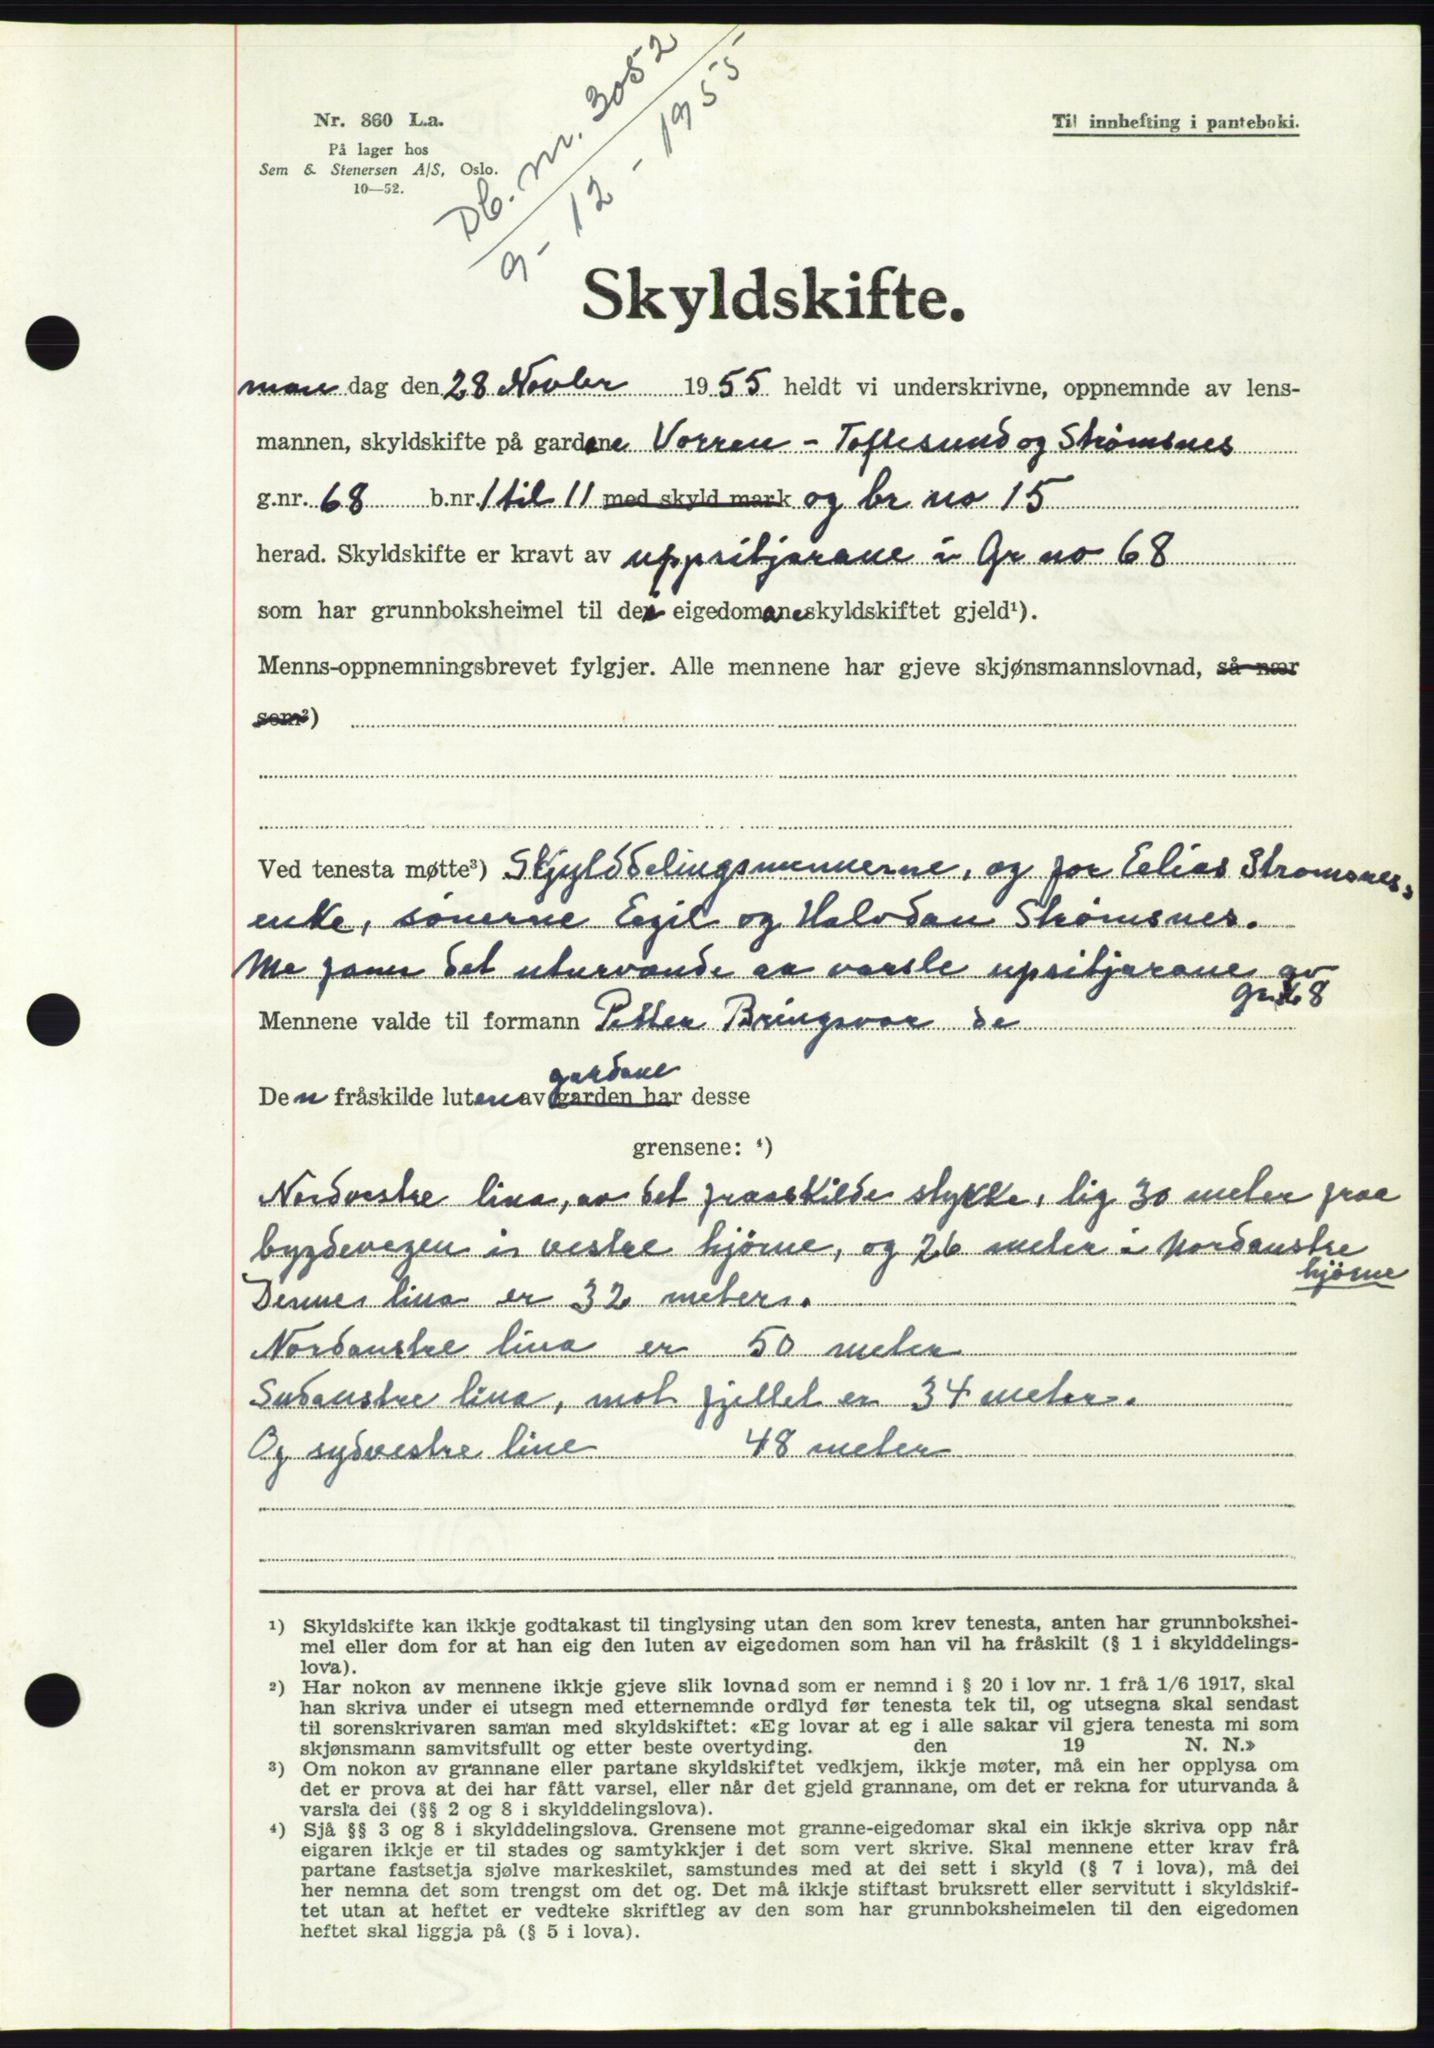 Nr. 860 L.a.
På lager hos
Sem & Stenersen A/S, Oslo.
10—52.
Db. nr. 3052
9 - 12 - 1955
Til innhefting i panteboki.
Skyldskifte.
man dag den 28 Novbr 1955 heldt vi underskrivne, oppnemnde av lens-
mannen, skyldskifte på gardane Vorren - Toftesund og Strømsnes
g.nr. 68 b.nr. 1 til 11 med skyld mark og br no 15
herad. Skyldskifte er kravt av uppsitjarane i Gr no 68
som har grunnboksheimel til dei eigedomane skyldskiftet gjeld¹).
Menns-oppnemningsbrevet fylgjer. Alle mennene har gjeve skjønsmannslovnad, så nær
som²)
Ved tenesta møtte³) Skjylddelingsmennerne, og for Eelias Stromsnes,
enke, sønerne Egil og Halvdan Strømsnes.
Me fann det uturvande aa varsle upsitjarane av
gr. 68
Mennene valde til formann Petter Bringsvor de
gardane
Den fråskilde luten av garden har desse
grensene: ⁴)
Nordvestre lina, av det fraaskilde stykke, lig 30 meter fraa
bygdevegen i vestre hjørne, og 26 meter i Nordaustre
hjørne
Denne lina er 32 meter.
Nordaustre lina er 50 meter
Sudaustre lina, mot fjellet er 34 meter.
Og sydvestre line 48 meter
¹) Skyldskifte kan ikkje godtakast til tinglysing utan den som krev tenesta, anten har grunnbokshei-
mel eller dom for at han eig den luten av eigedomen som han vil ha fråskilt (§ 1 i skylddelings-
lova).
²) Har nokon av mennene ikkje gjeve slik lovnad som er nemnd i § 20 i lov nr. 1 frå 1/6 1917, skal
han skriva under ei utsegn med etternemnde ordlyd før tenesta tek til, og utsegna skal sendast
til sorenskrivaren saman med skyldskiftet: «Eg lovar at eg i alle sakar vil gjera tenesta mi som
skjønsmann samvitsfullt og etter beste overtyding. den 19 N. N.»
³) Om nokon av grannane eller partane skyldskiftet vedkjem, ikkje møter, må ein her opplysa om
det er prova at dei har fått varsel, eller når det gjeld grannane, om det er rekna for uturvanda å
varsla dei (§§ 2 og 8 i skylddelingslova).
⁴) Sjå §§ 3 og 8 i skylddelingslova. Grensene mot granne-eigedomar skal ein ikkje skriva opp når
eigaren ikkje er til stades og samtykkjer i det som vert skrive. Skal mennene etter krav frå
partane fastsetja sjølve markeskilet, samstundes med at dei sett i skyld (§ 7 i lova), må dei
her nemna det som trengst om det og. Det må ikkje stiftast bruksrett eller servitutt i skyldskif-
tet utan at heftet er vedteke skriftleg av den som har grunnboksheimelen til den eigedomen
heftet skal liggja på (§ 5 i lova).